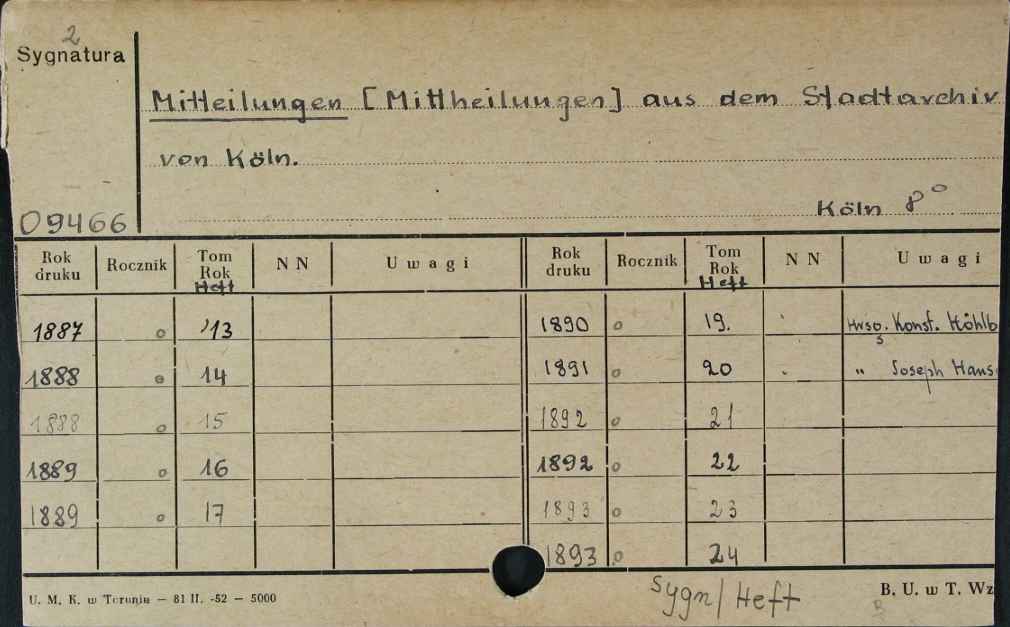 2
Sygnatura
Mitteilungen [Mittheilungen] aus dem Stadtarchiv
von Köln.
09466
Köln 8°
Rok druku Rocznik Tom Rok Heft N N Uwagi Rok druku Rocznik Tom Rok Heft N N Uwagi
1887 o 13 1890 o 19. Konst. Höhlb
1888 o 14 1891 o 20 " Joseph Hans
1888 o 15 1892 o 21
1889 o 16 1892 o 22
1889 o 17 1893 o 23
1893 o 24
U. M. K. w Toruniu — 81 II. -52 — 5000
Sygn/Heft
B. U. w T. Wz
B